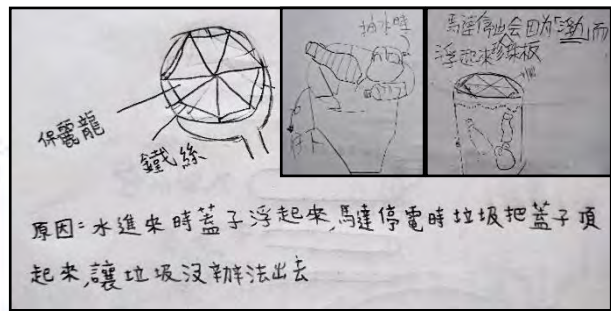 保麗龍
鐵絲
抽水時
馬達停止會因為「浮力」而
浮起來
板
原因:水進來時蓋子浮起來,馬達停電時垃圾把蓋子頂
起來,讓垃圾沒辦法出去